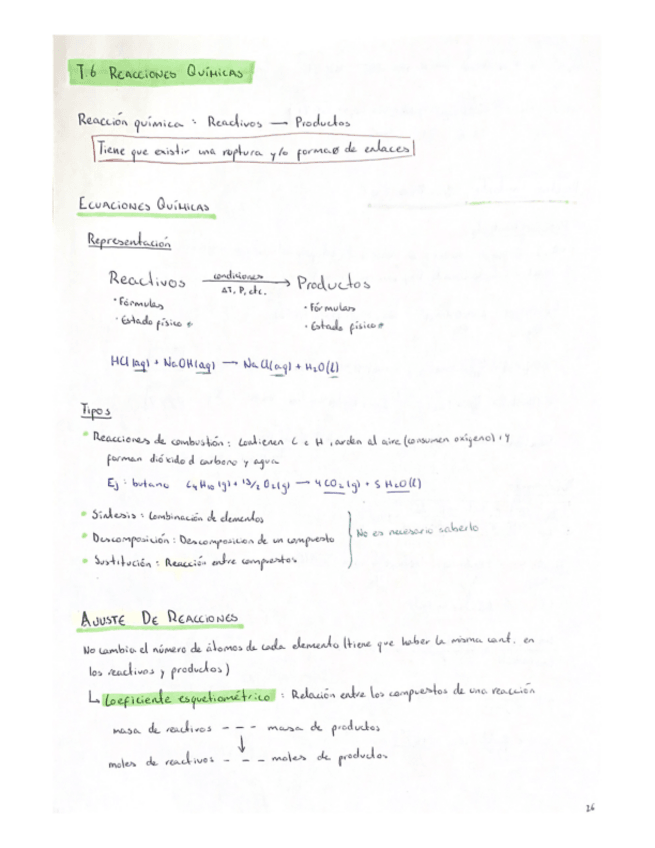 T.6 REACCIONES QUÍMICAS
Reacción química : Reactivos → Productos
Tiene que existir una ruptura y/o formaø de enlaces
ECUACIONES QUÍMICAS
Representación
Reactivos condiciones ΔT, P, etc. → Productos
· Fórmulas · Fórmulas
· Estado físico * · Estado físico *
HCl (aq) + NaOH (aq) → NaCl (aq) + H₂O (l)
Tipos
Reacciones de combustión : Contienen C e H , arden al aire (consumen oxígeno) , y
forman dióxido d carbono y agua
Ej : butano C₄H₁₀ (g) + 13/2 O₂ (g) → 4 CO₂ (g) + 5 H₂O (l)
Síntesis : Combinación de elementos
Descomposición : Descomposición de un compuesto
No es necesario saberlo
Sustitución : Reacción entre compuestos
AJUSTE DE REACCIONES
No cambia el número de átomos de cada elemento (tiene que haber la misma cant. en
los reactivos y productos)
↳ Coeficiente esquetiométrico : Relación entre los compuestos de una reacción
masa de reactivos - - - masa de productos
↓
moles de reactivos - - - moles de productos
26